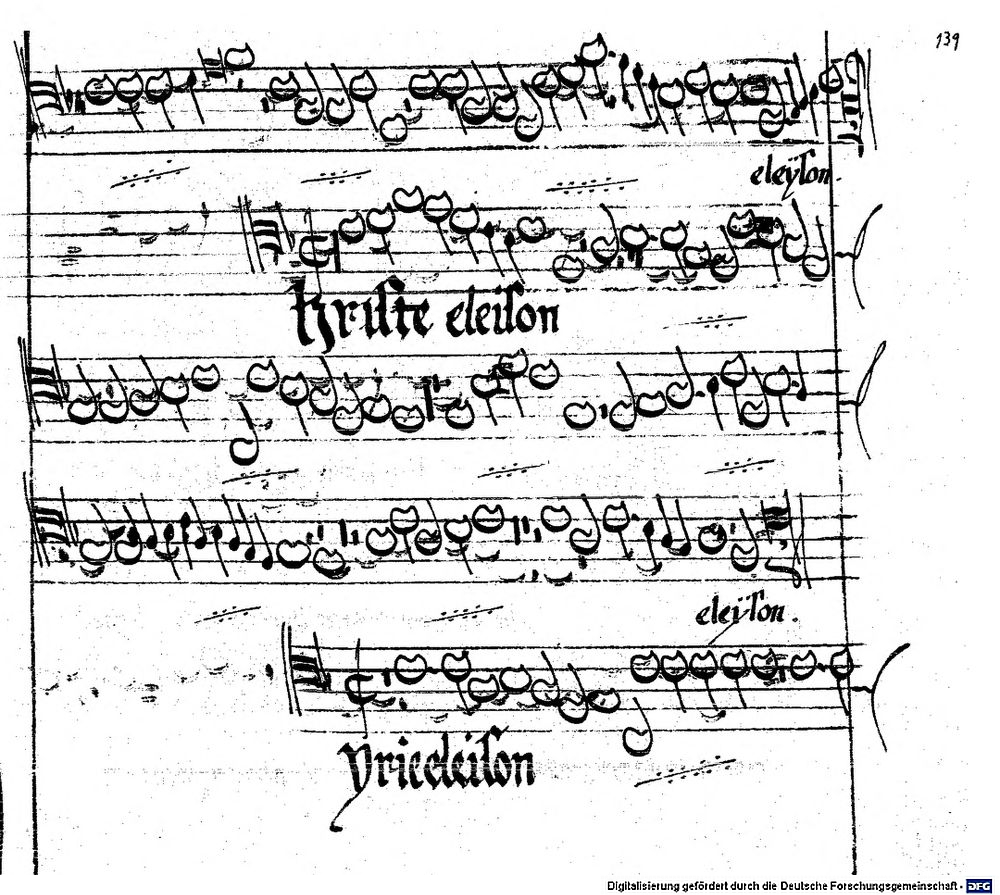 139
eleÿson.
kriste eleison
eleÿson.
yrieeleison
Digitalisierung gefördert durch die Deutsche Forschungsgemeinschaft - DFG